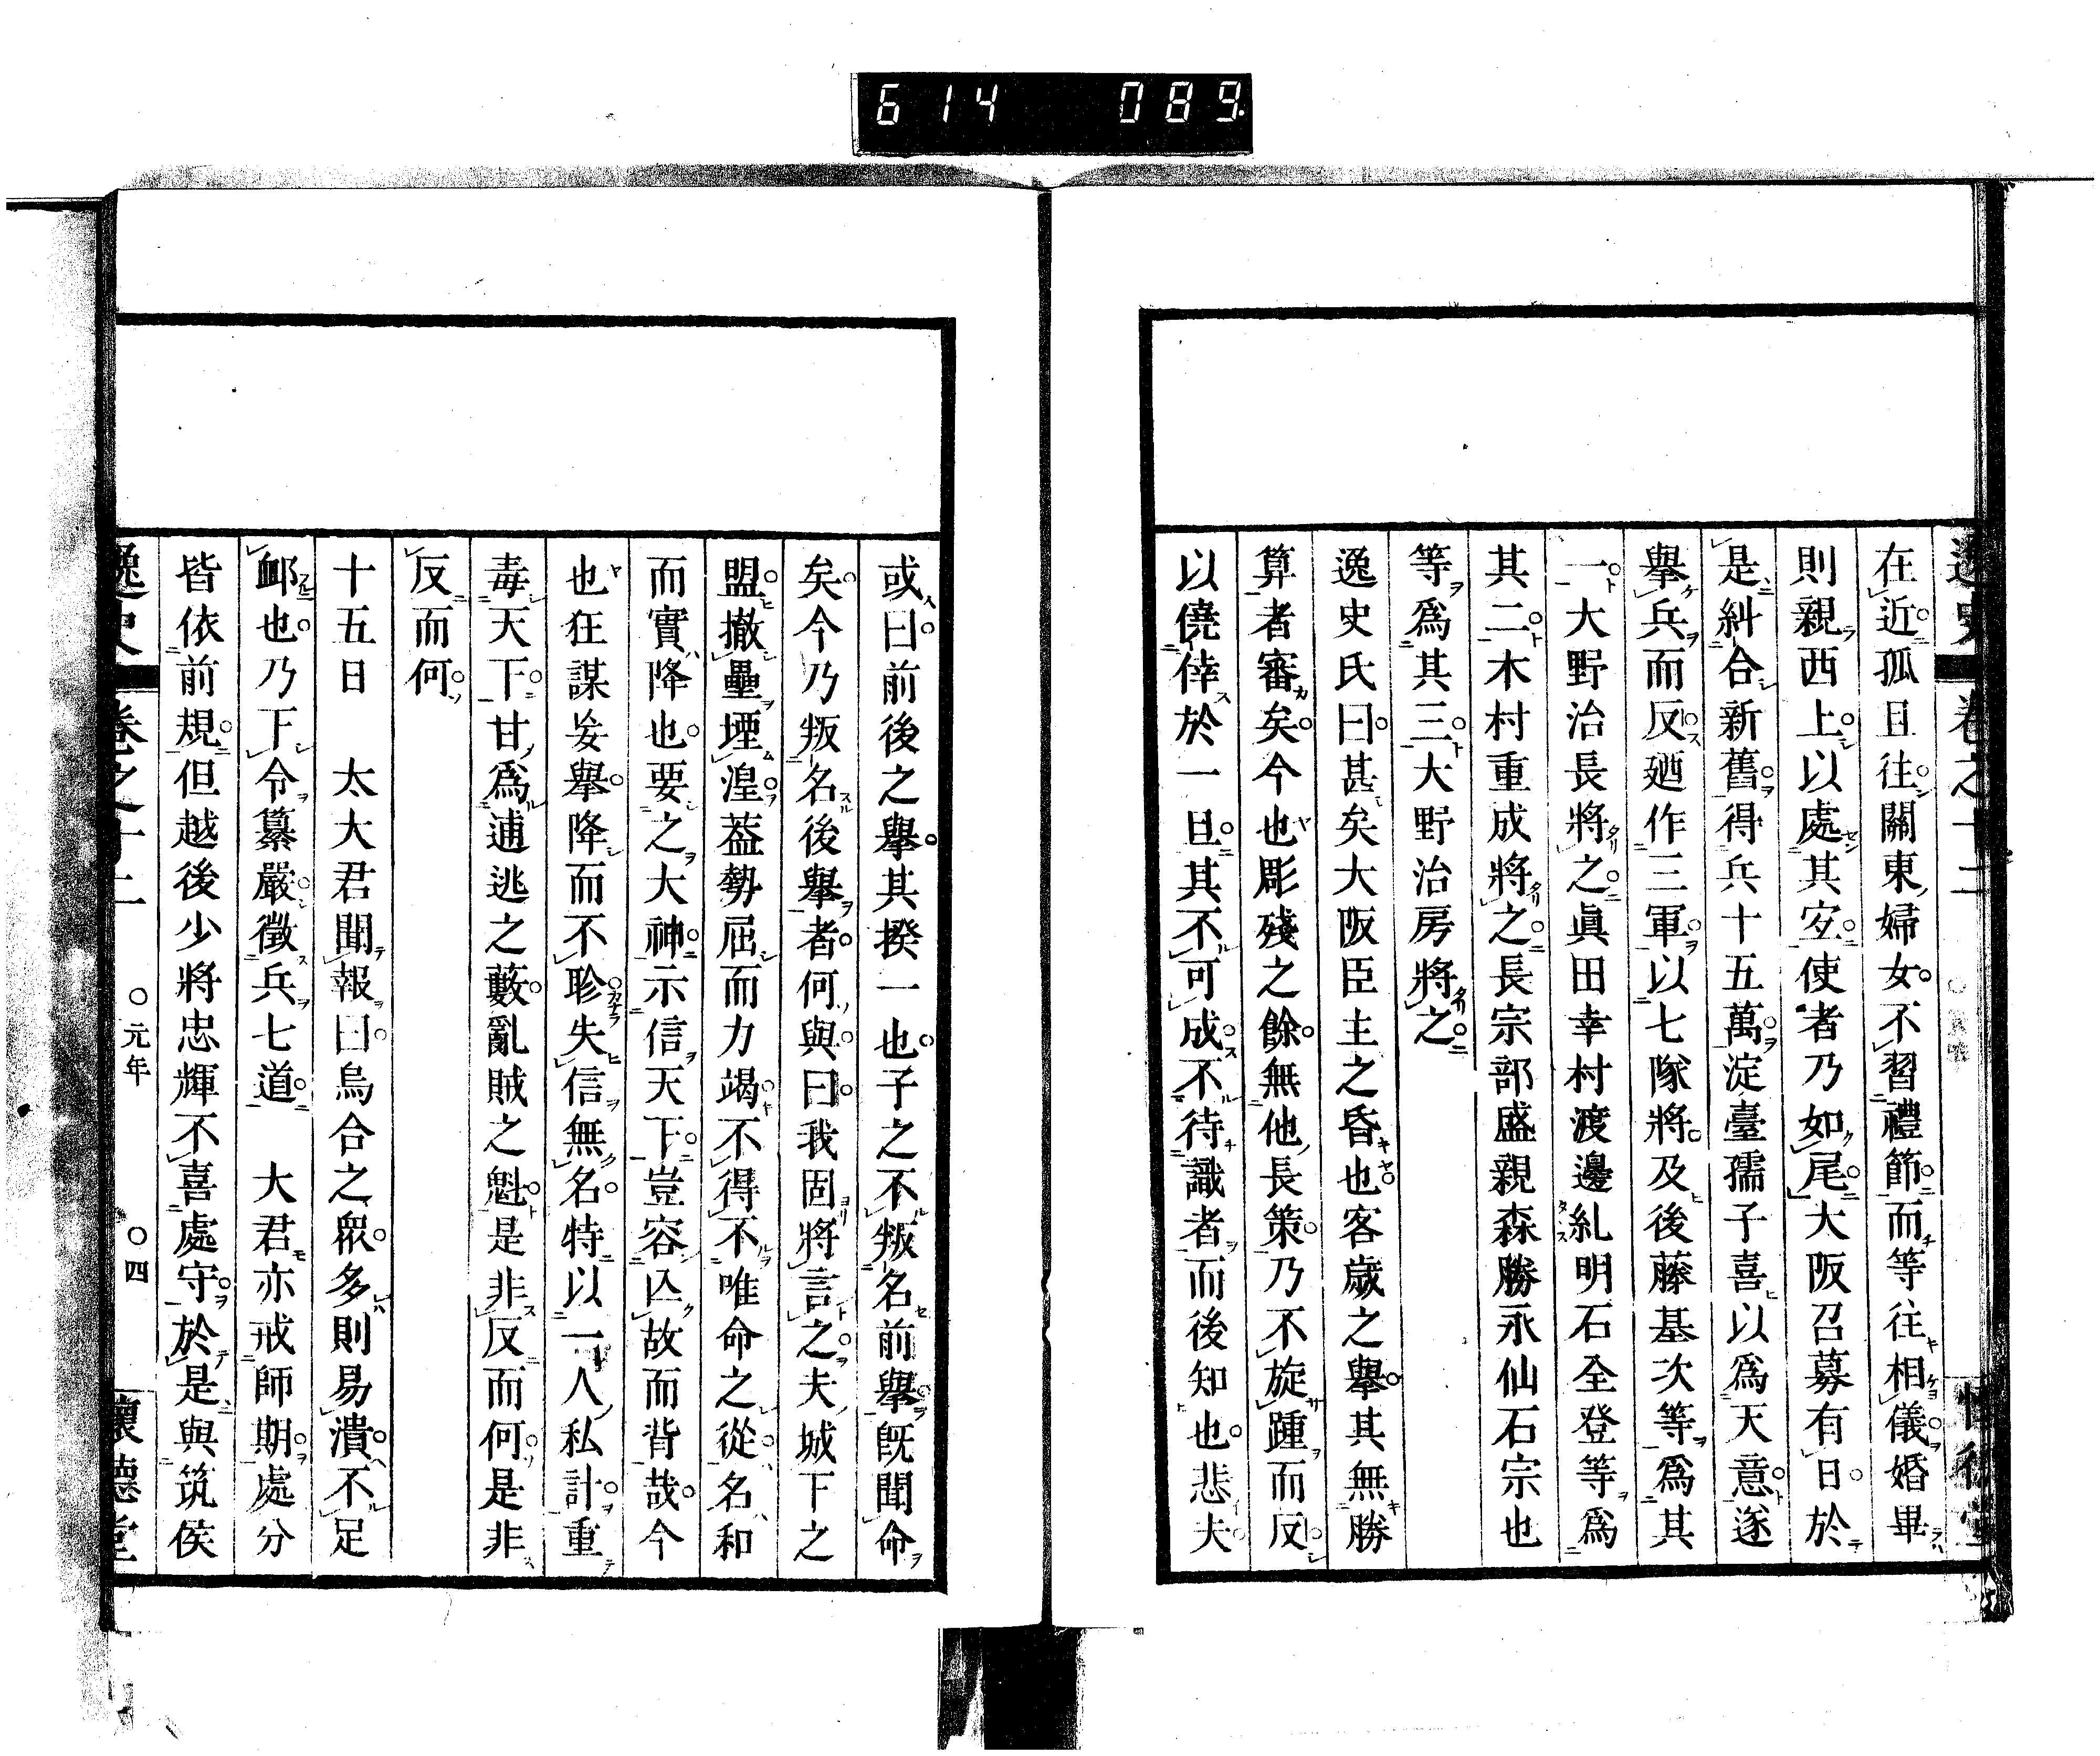 614 089
逸史 卷之十二 懷德堂
在近孤且往關東婦女不習禮節而等往相儀婚畢
則親西上以處其安使者乃如尾大阪召募有日於
是糾合新舊得兵十五萬淀臺孺子喜以爲天意遂
擧兵而反廼作三軍以七隊將及後藤基次等爲其
一大野治長將之眞田幸村渡邊糺明石全登等爲
其二木村重成將之長宗部盛親森勝永仙石宗也
等爲其三大野治房將之
逸史氏曰甚矣大阪臣主之昏也客歲之擧其無勝
算者審矣今也彫殘之餘無他長策乃不旋踵而反
以僥倖於一旦其不可成不待識者而後知也悲夫
或曰前後之擧其揆一也子之不叛名前擧旣聞命
矣今乃叛名後擧者何與曰我固將言之夫城下之
盟撤壘堙湟葢勢屈而力竭不得不唯命之從名和
而實降也要之大神示信天下豈容亾故而背哉今
也狂謀妄擧降而不聆失信無名特以一人私計重
毒天下甘爲逋逃之藪亂賊之魁是非反而何是非
反而何
十五日 太大君聞報曰烏合之衆多則易潰不足
衈也乃下令纂嚴徵兵七道 大君亦戒師期處分
皆依前規但越後少將忠輝不喜處守於是與筑侯
逸史 卷之十二 〇元年 〇四 懷德堂